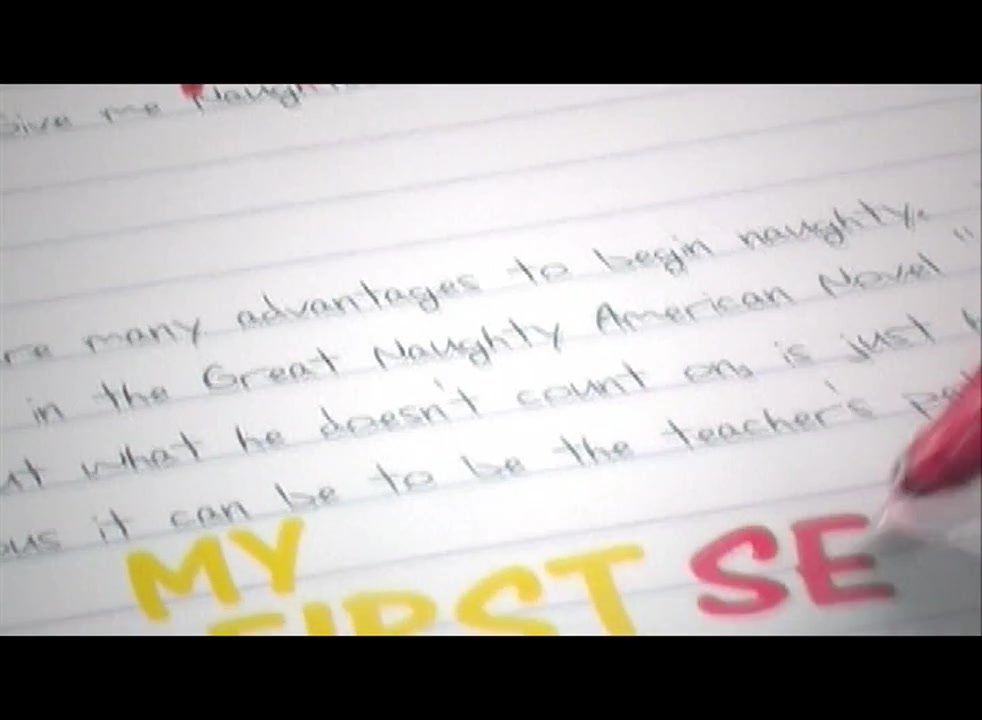 Give me Naught
re many advantages to begin naughty.
in the Great Naughty American Novel "
ut what he doesn't count on, is just h
ous it can be to be the teacher's pe
MY
FIRST SE